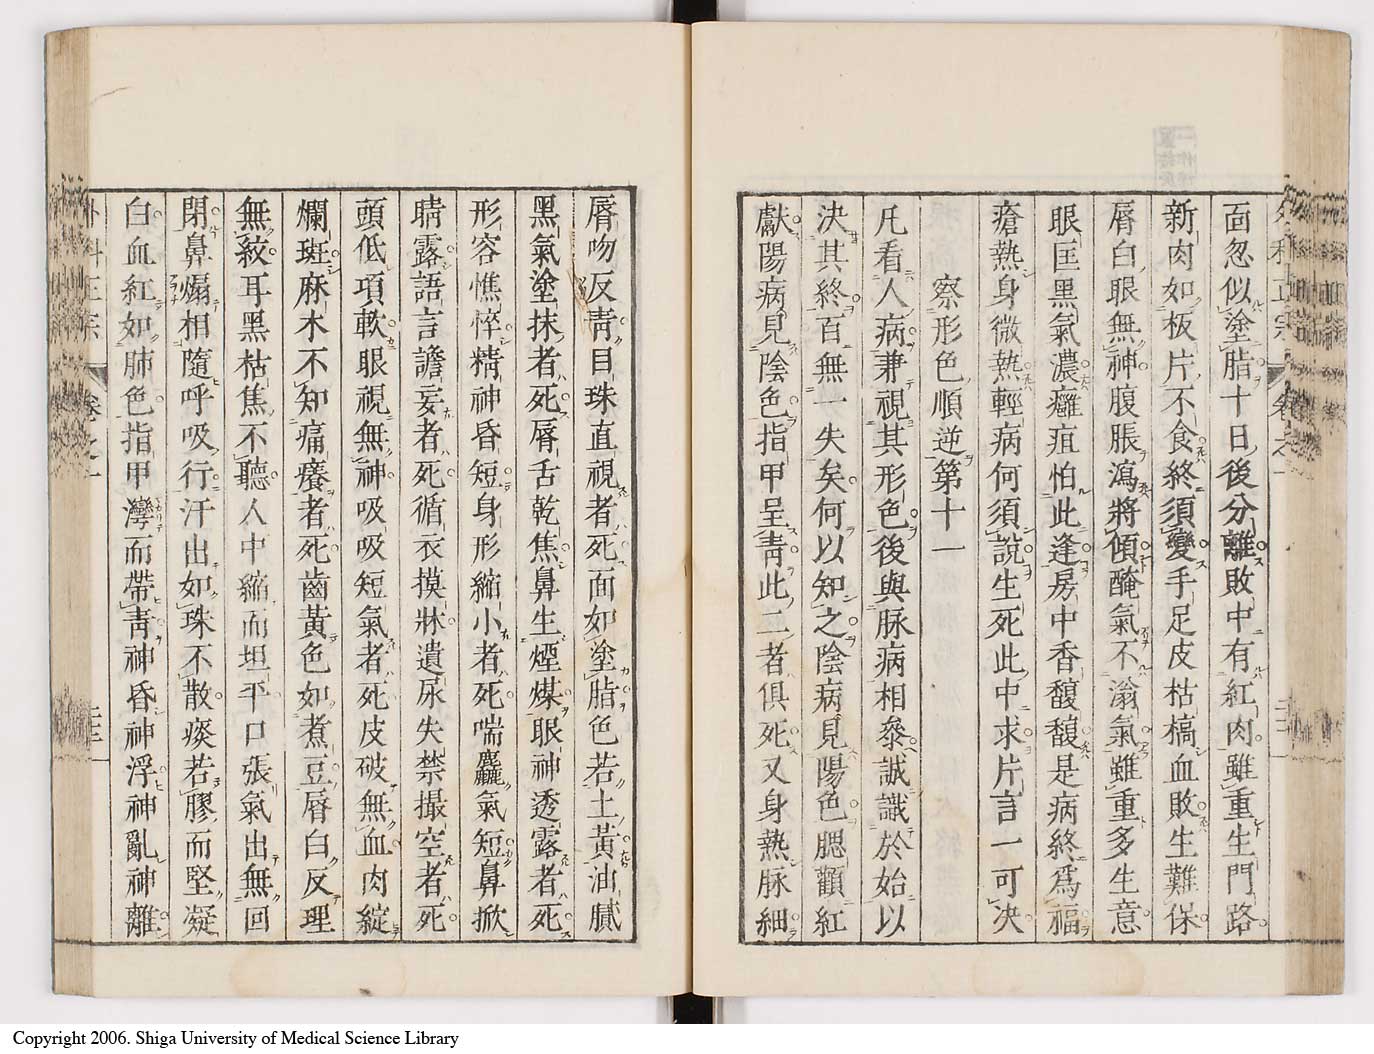 面忽似塗脂十日後分離敗中有紅肉雖重生門路
新肉如板片不食終須變手足皮枯槁血敗生難保
唇白眼無神腹脹瀉將傾醃氣不滃氣雖重多生意
眼匡黑氣濃癰疽怕此逢房中香馥馥是病終爲福
瘡熱身微熱輕病何須説生死此中求片言一可决
察形色順逆第十一
凡看人病兼視其形色後與脉病相參誠識於始以
決其終百無一失矣何以知之陰病見陽色腮顴紅
獻陽病見陰色指甲呈青此二者俱死又身熱脉細
唇吻反青目珠直視者死面如塗脂色若土黃油膩
黑氣塗抹者死唇舌乾焦鼻生煙煤眼神透露者死
形容憔悴精神昏短身形縮小者死喘麤氣短鼻掀
睛露語言譫妄者死循衣摸牀遺尿失禁撮空者死
頭低項軟眼視無神吸吸短氣者死皮破無血肉綻
爛斑麻木不知痛癢者死齒黃色如煮豆唇白反理
無紋耳黑枯焦不聽人中縮而坦平口張氣出無回
閉鼻煽相隨呼吸行汗出如珠不散痰若膠而堅凝
白血紅如肺色指甲灣而帶青神昏神浮神亂神離
外科正宗 卷之一
Copyright 2006. Shiga University of Medical Science Library